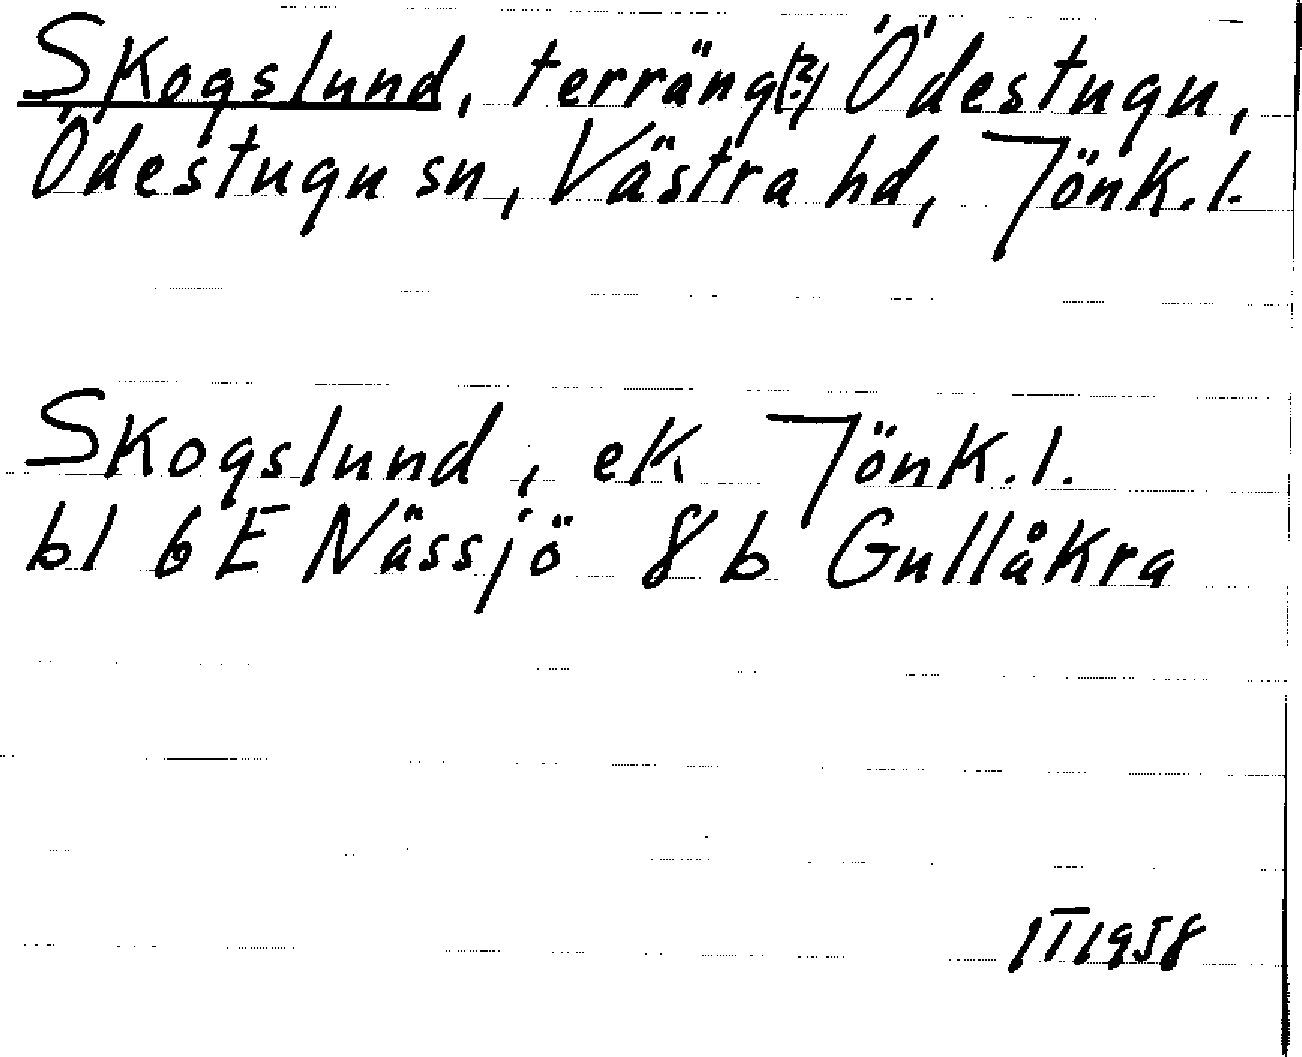 Skogslund, terräng(?) Ödestugu,
Ödestugu sn, Västra hd, Jönk.l.
Skogslund, ek Jönk.l.
bl 6E Nässjö 8b Gullåkra
1958